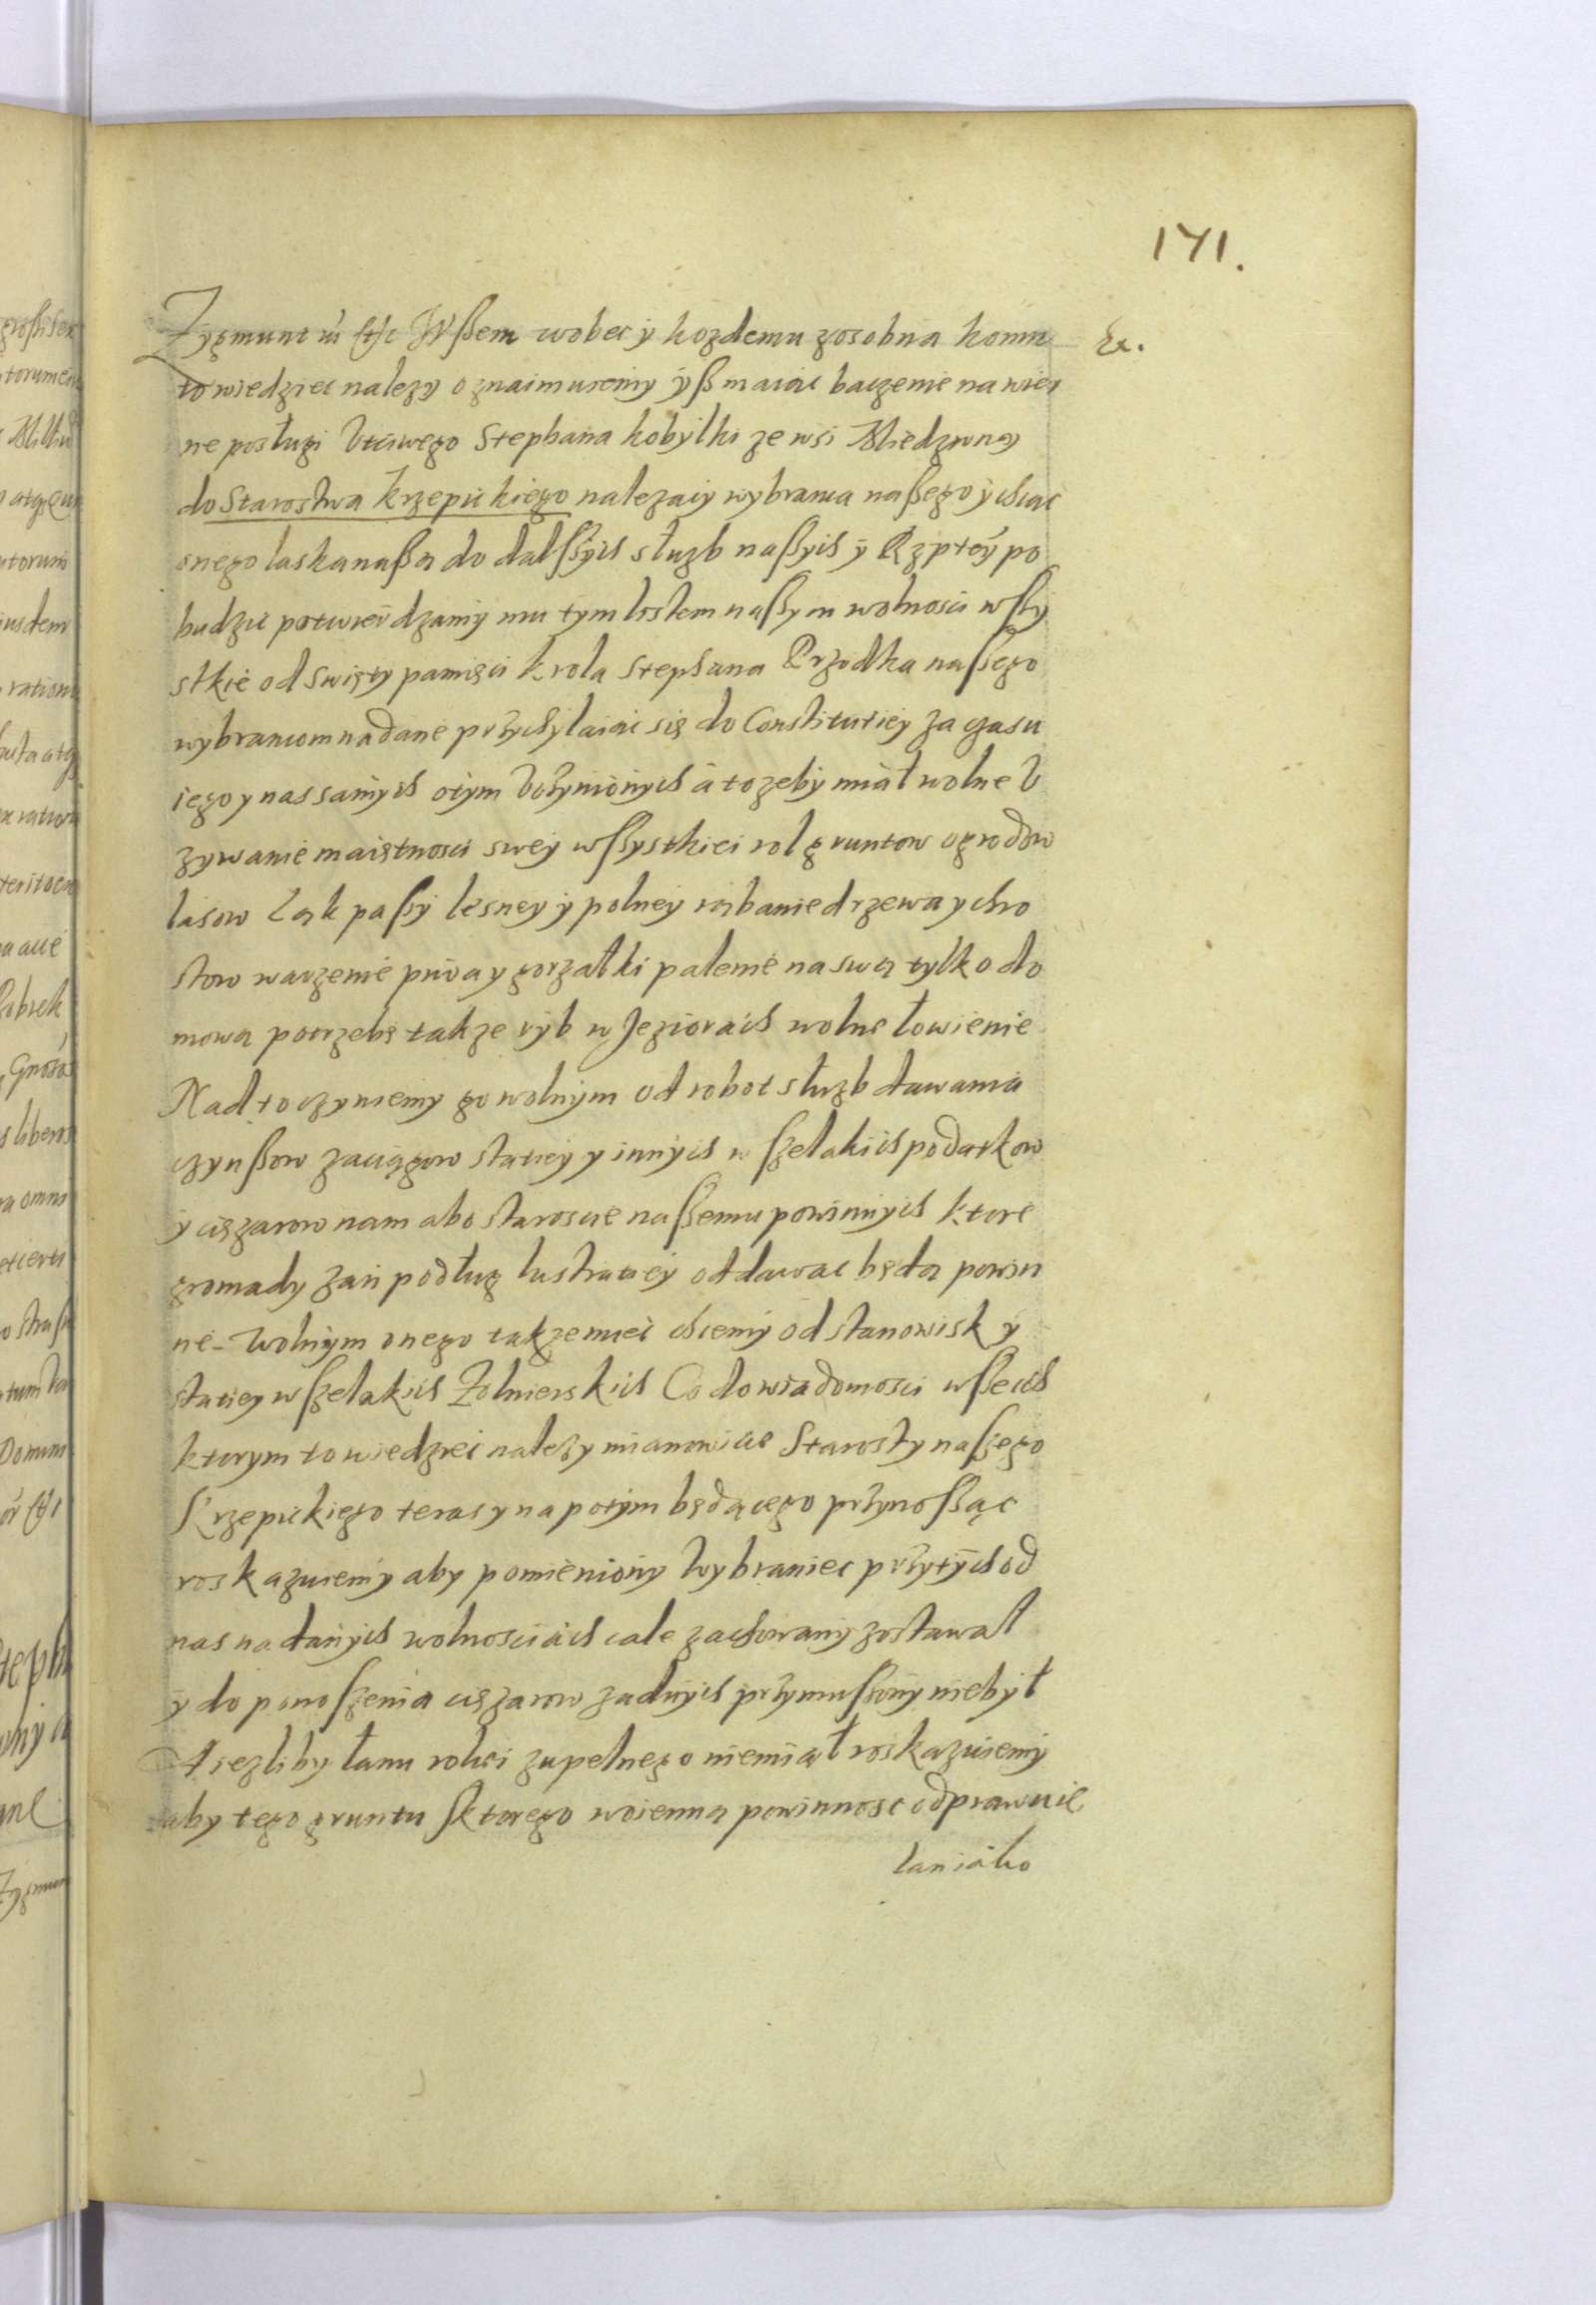 171.
Zygmunt &c Wßem wobec y kozdemu zosobna komu &c.
to wiedziec nalezy oznaimuiemy yß maiąc baczenie na wier
ne posługi Vcciwego Stephana kobyłki ze wsi Miedzwney
do Starostwa Krzepickiego nalezącÿ wybranca naßego ẏ chcąc
onego laską naßą do dalßẏch służb naßych ẏ Rzptey po
budzic potwierdzamy mu tym listem naßym wolnosci wßy
stkie od swiętẏ pamięci krola Stephana Przodka naßego
wybrancom nadane przychylaiąc się do Constituciey za czasu
iego y nas samych otym Vczynionych a to zeby miał wolne V
zywanie maiętnosci swey wßystkiei rol gruntow ogrodow
lasow łąk paßy lesney y polney rąbanie drzewa y chro
stow warzenie piwa y gorzałki palenie na swą tylko do
mową potrzebę takze ryb w Jeziorach wolne łowienie
Nadto czyniemy go wolnym od robot służb dawania
czynßow zaciągow staciey y innych wszelakich podatkow
y cięzarow nam abo staroscie naßemu powinnych ktore
gromady zań podług lustraciey oddawac będą powin
ne. Wolnym onego takze miec chcemy od stanowisk y
staciey wszelakich Zolnierskich Co do wiadomosci wßech
ktorym to wiedziec nalezy mianowicie Starosty naszego
Krzepickiego teras y napotym będącego przynoßąc
roskazuiemy aby pomieniony Wybraniec przy tych od
nas nadanych wolnosciach cale zachowany zostawał
y do ponoszenia cięzarow zadnych przymußony niebył
A iezliby łanu rolei zupelnego niemiał roskazuiemy
aby tego gruntu sktorego woienną powinnosc odprawuie